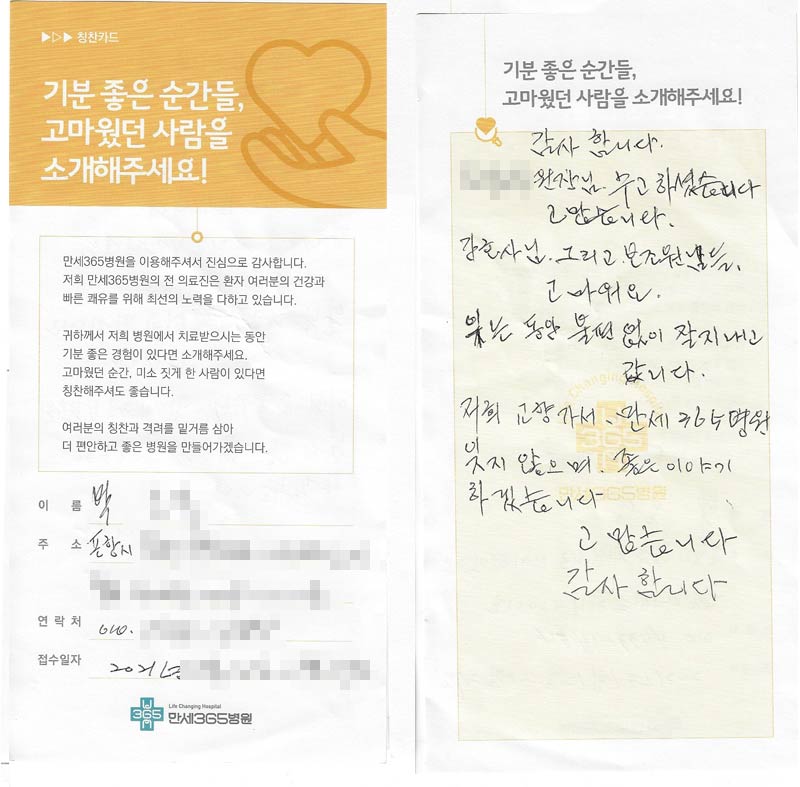 ▶▷▶ 칭찬카드
기분 좋은 순간들,
고마웠던 사람을
소개해주세요!
만세365병원을 이용해주셔서 진심으로 감사합니다.
저희 만세365병원의 전 의료진은 환자 여러분의 건강과
빠른 쾌유를 위해 최선의 노력을 다하고 있습니다.
귀하께서 저희 병원에서 치료받으시는 동안
기분 좋은 경험이 있다면 소개해주세요.
고마웠던 순간, 미소 짓게 한 사람이 있다면
칭찬해주셔도 좋습니다.
여러분의 칭찬과 격려를 밑거름 삼아
더 편안하고 좋은 병원을 만들어가겠습니다.
이 름 박
주 소 포항시
연락처 010.
접수일자 2021년
Life Changing Hospital
365 만세365병원
기분 좋은 순간들,
고마웠던 사람을 소개해주세요!
감사 합니다.
원장님. 수고 하셨습니다
고맙습니다.
간호사님. 그리고 보조원님들.
고마워요.
있는 동안 불편 없이 잘지내고
갑니다.
저희 고향가서. 만세 365병원
잊지 않으며. 좋은 이야기
하겠습니다
고맙습니다
감사 합니다
Life Changing Hospital
365
만세365병원